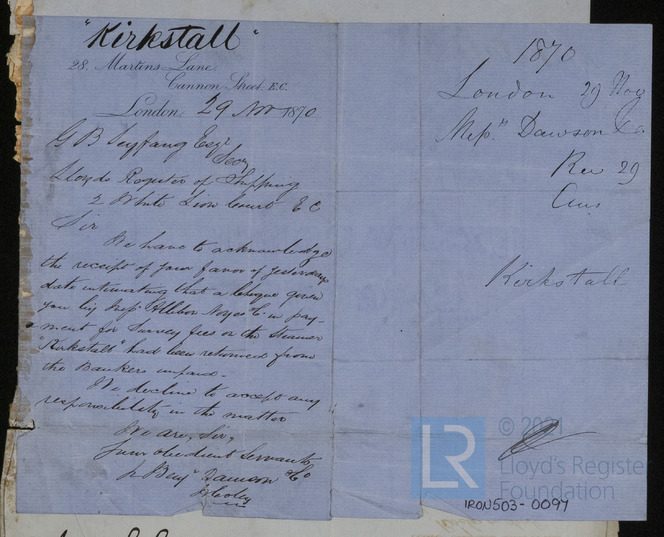 "Kirkstall"
28. Martins Lane.
Cannon Street. E.C.
London, 29 Nov 1870
G B Seyfang Esqr
Secy
Lloyds Register of Shipping
2 White Lion Court E C
Sir
We have to acknowledge
the receipt of your favor of yesterdays
date intimating that a cheque given
you by Messrs Noyes & Co in pay-
ment for Survey fees on the Steamer
"Kirkstall" had been returned from
the Bankers unpaid.
We decline to accept any
responsibility in the matter
We are, Sir,
Your obedient Servants
p Benjn Dawson & Co
1870
London 29 Nov
Messrs Dawson & Co
Rec 29
Ans
Kirkstall
LR
© 2021
Lloyd's Register
Foundation
IRON503-0097